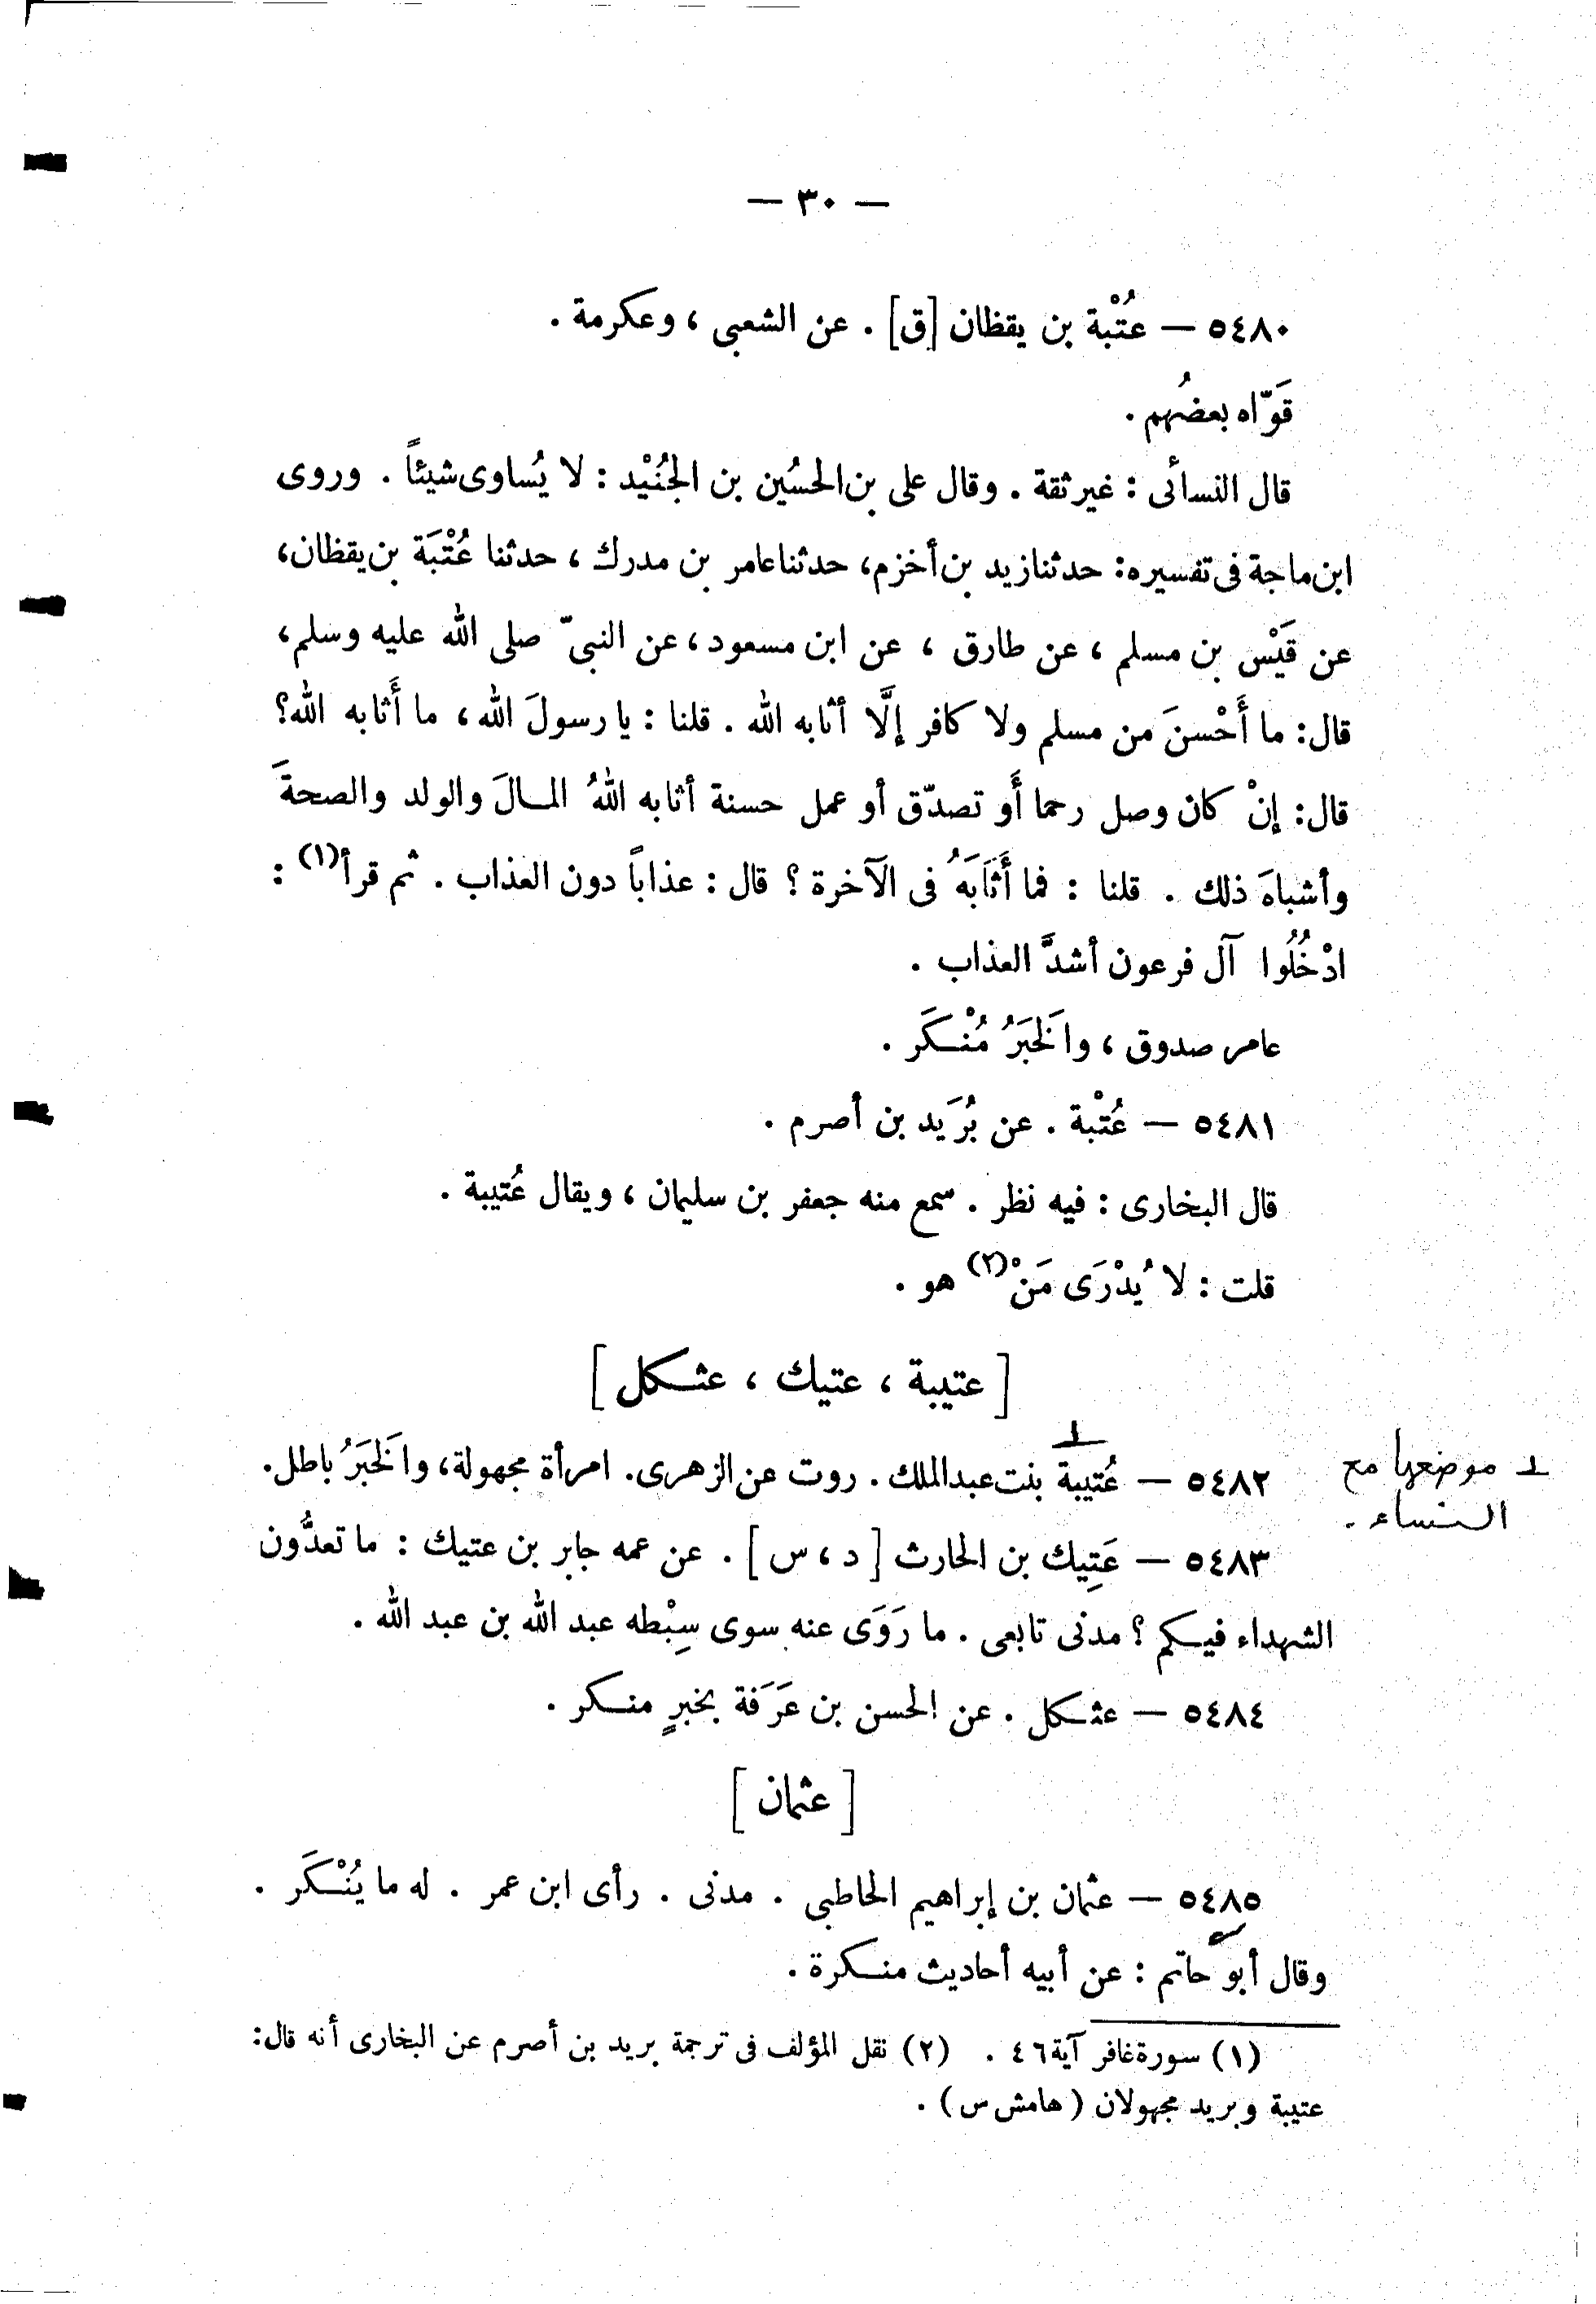 — ٣٠ —
٥٤٨٠ — عُتْبة بن يقظان [ق] . عن الشعبى ، وعكرمة .
قَوّاه بعضُهم .
قال النسائى : غير ثقة . وقال على بن الحسُين بن الجُنَيْد : لا يُساوى شيئاً . وروى
ابن ماجة فى تفسيره: حدثنا زيد بن أخزم، حدثنا عامر بن مدرك ، حدثنا عُتْبَة بن يقظان،
عن قَيْس بن مسلم ، عن طارق ، عن ابن مسعود ، عن النبىّ صلى الله عليه وسلم،
قال: ما أَحْسنَ من مسلم ولا كافر إلَّا أثابه الله . قلنا : يا رسولَ الله، ما أَثابه الله؟
قال: إنْ كان وصل رحما أَو تصدّق أو عمل حسنة أثابه اللهُ المـالَ والولد والصحةَ
وأشباهَ ذلك . قلنا : فما أَثَابَهُ فى الآخرة ؟ قال : عذاباً دون العذاب . ثم قرأ(١) :
ادْخُلُوا آل فرعون أشدَّ العذاب .
عامر صدوق ، والخَبَرُ مُنْـكَر .
٥٤٨١ — عُتْبة . عن بُرَيد بن أصرم .
قال البخارى : فيه نظر . سمع منه جعفر بن سليمان ، ويقال عُتيبة .
قلت : لا يُدْرَى مَنْ(٢) هو .
[ عتيبة ، عتيك ، عثـكل ]
٥٤٨٢ — عُتيبة بنت عبد الملك . روت عن الزهرى. امرأة مجهولة، والخَبَرُ باطل.
⊥ موضعها مع
النساء .
٥٤٨٣ — عَتِيك بن الحارث [ د ، س ] . عن عمه جابر بن عتيك : ما تعدُّون
الشهداء فيـكم ؟ مدنى تابعى . ما رَوَى عنه سوى سِبْطه عبد الله بن عبد الله .
٥٤٨٤ — عثـكل . عن الحسن بن عَرَفة بخبرٍ منـكر .
[ عثمان ]
٥٤٨٥ — عثمان بن إبراهيم الحاطبى . مدنى . رأى ابن عمر . له ما يُنْـكَر .
وقال أبو حاتم : عن أبيه أحاديث منـكرة .
(١) سورة غافر آية ٤٦ . (٢) نقل المؤلف فى ترجمة بريد بن أصرم عن البخارى أنه قال:
عتيبة وبريد مجهولان (هامش س) .